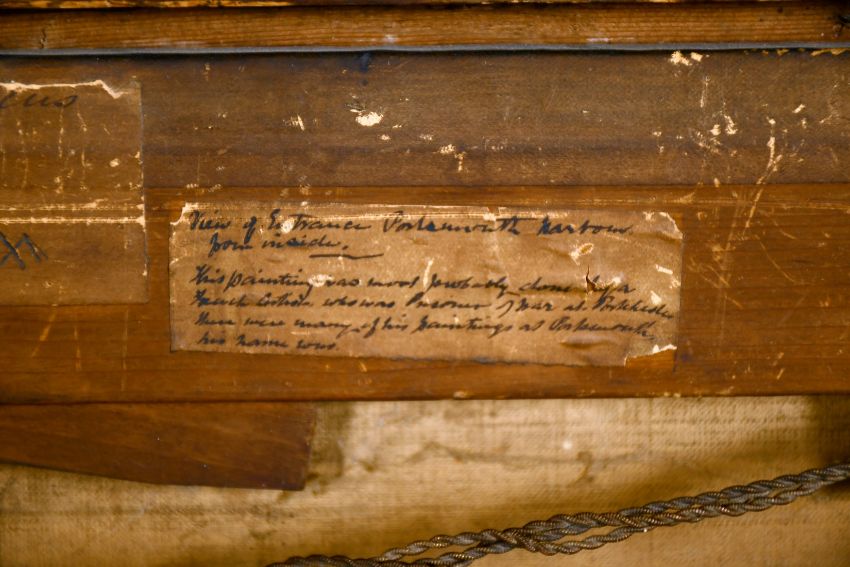 View of Entrance Portsmouth Harbour
from inside.
This painting was most probably done by a
French Artist who was Prisoner of War at Portchester
there were many of his paintings at Portsmouth,
his name was.
XI